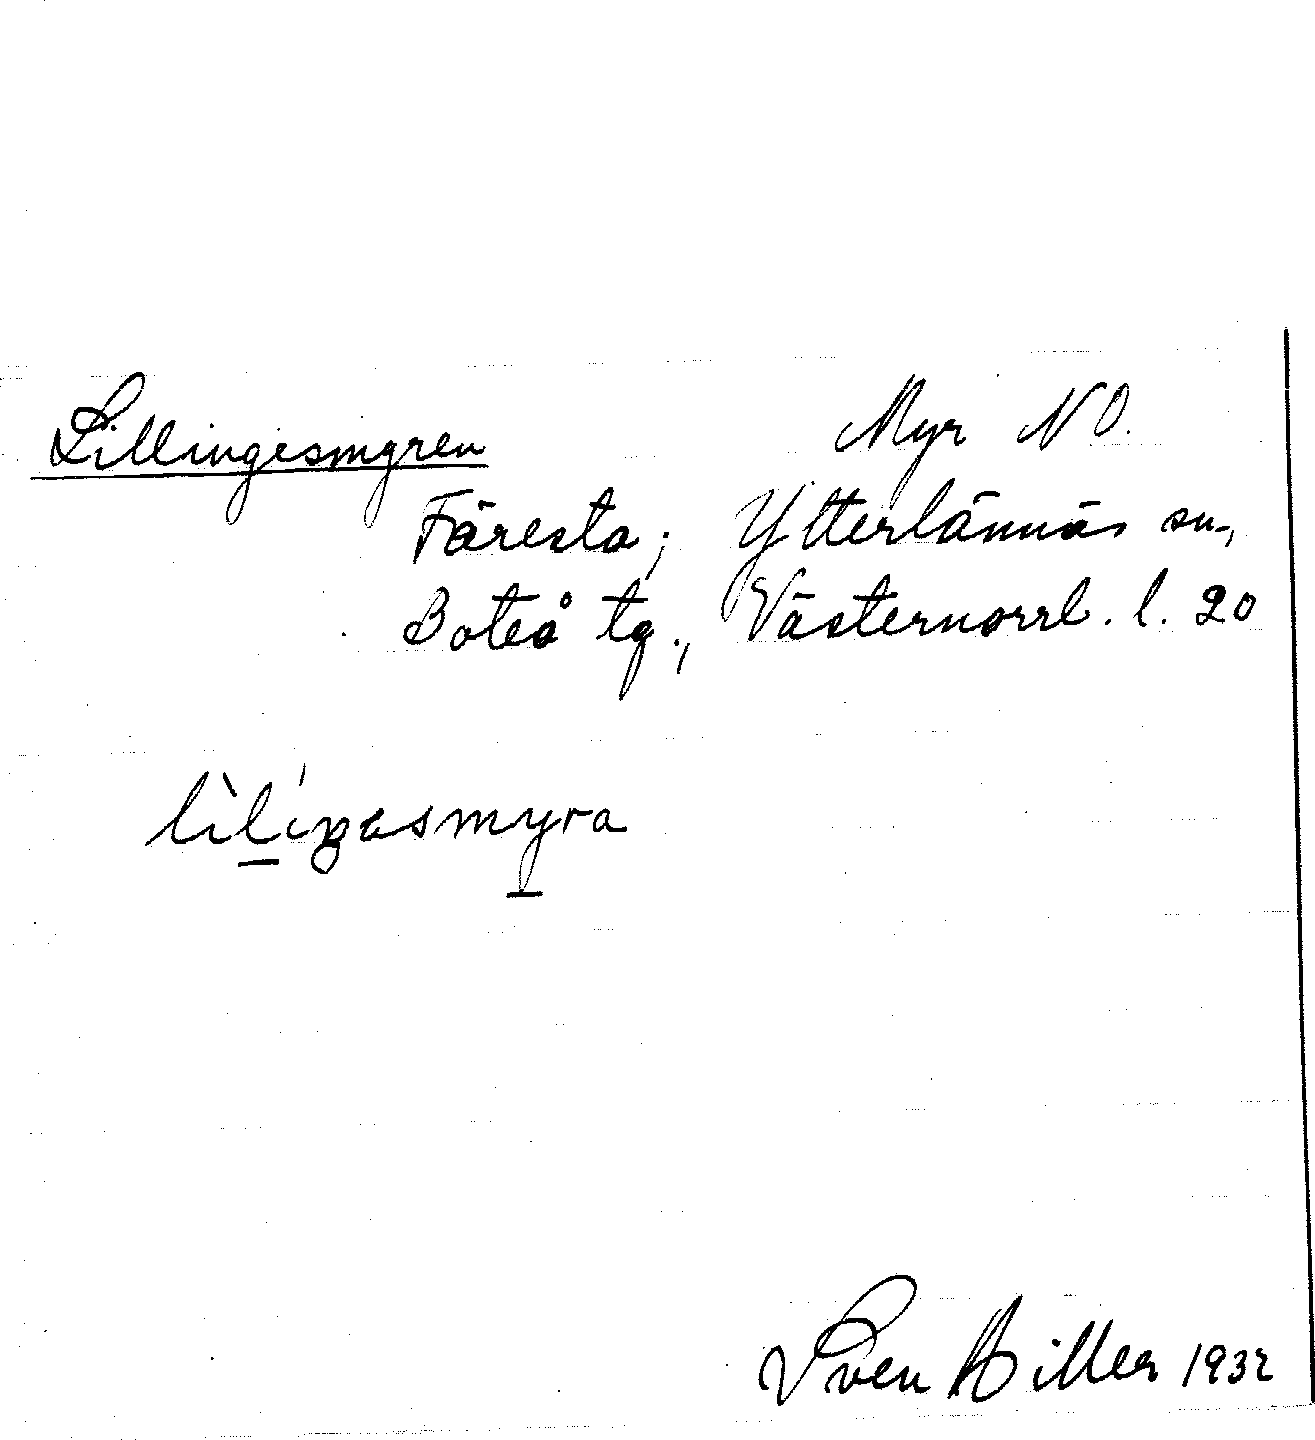 Lillingesmyren Myr NO.
Färesta; Ytterlännäs sn,
Boteå tg., Västernorrl. l. 20
lìlíŋesmyra
Sven Hiller 1932